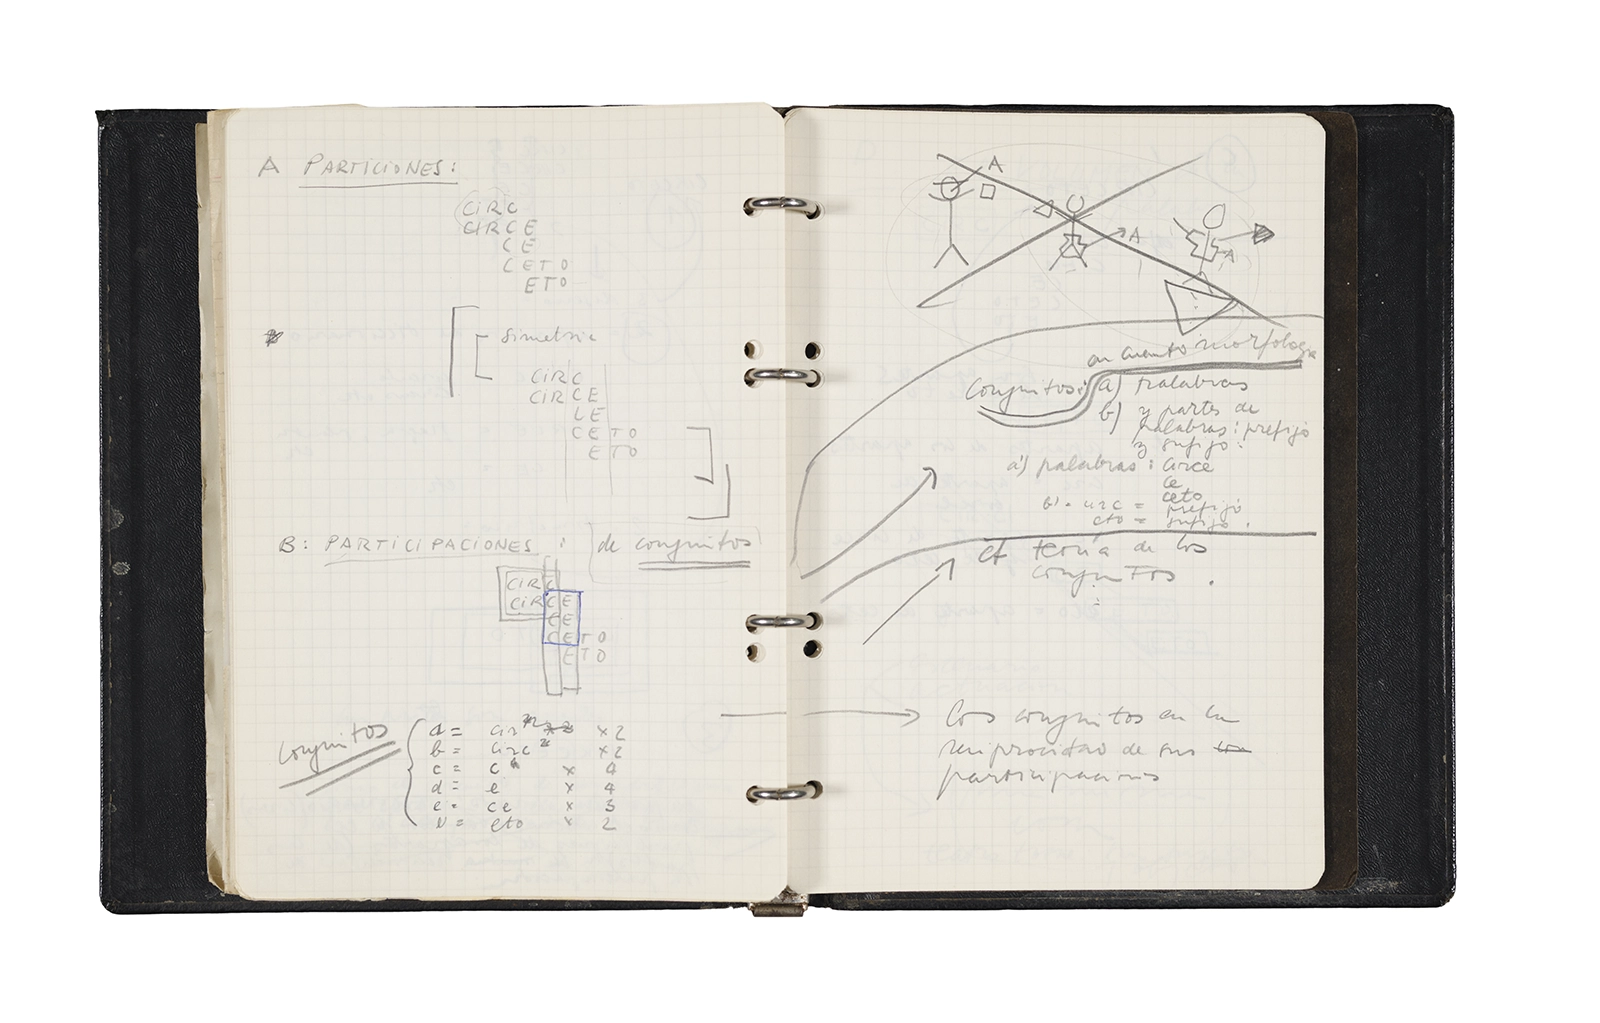 A PARTICIONES:
CIRC
CIRCE
CE
CETO
ETO
Simetria
CIRC
CIRCE
CE
CETO
ETO
B: PARTICIPACIONES : de conjuntos
CIRC
CIRCE
CE
CETO
ETO
Conjuntos
a = cir x 2
b = circ x 2
c = c x 4
d = e x 4
e = ce x 3
= eto x 2
A
A
A
en cuanto morfologia
Conjuntos: a) palabras
b) y partes de
palabras: prefijo
y sufijo:
a') palabras: circe
ce
ceto
b' circ = prefijo
eto = sufijo.
cf teoría de los
conjuntos.
Los conjuntos en la
reciprocidad de sus
participaciones